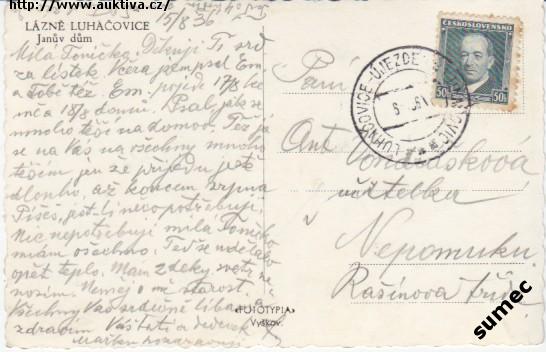 http://www.auktiva.cz/
15/8 36
LÁZNĚ LUHAČOVICE
Janův dům
Milá Toničko. Děkuji Ti srd
za lístek. Včera jsem psal Em
a Tobě též Em. pojede 17/8
18/8 domů. Psal jak se
mnoho těší na domov. Též já
se na Vás na všechny mnoho
těším jen že přijedu ještě
dlouho, až koncem srpna
Píšeš, jest-li něco potřebuji.
Nic nepotřebuji milá Toničko
mám všechno. Teď se udělalo
opět teplo. Mám z deky, svetr ne
nosím. Neměj o mě starost.
Všechny Vás srdečně líbá a
zdravím Váš táta a dědeček
pozdravují
ČESKOSLOVENSKO
50h 50h
LUHAČOVICE
Paní
Ant. Vondrášková
učitelka
Nepomuku
Rašínova třída
«FOTOTYPIA»
Vyškov.
sumec